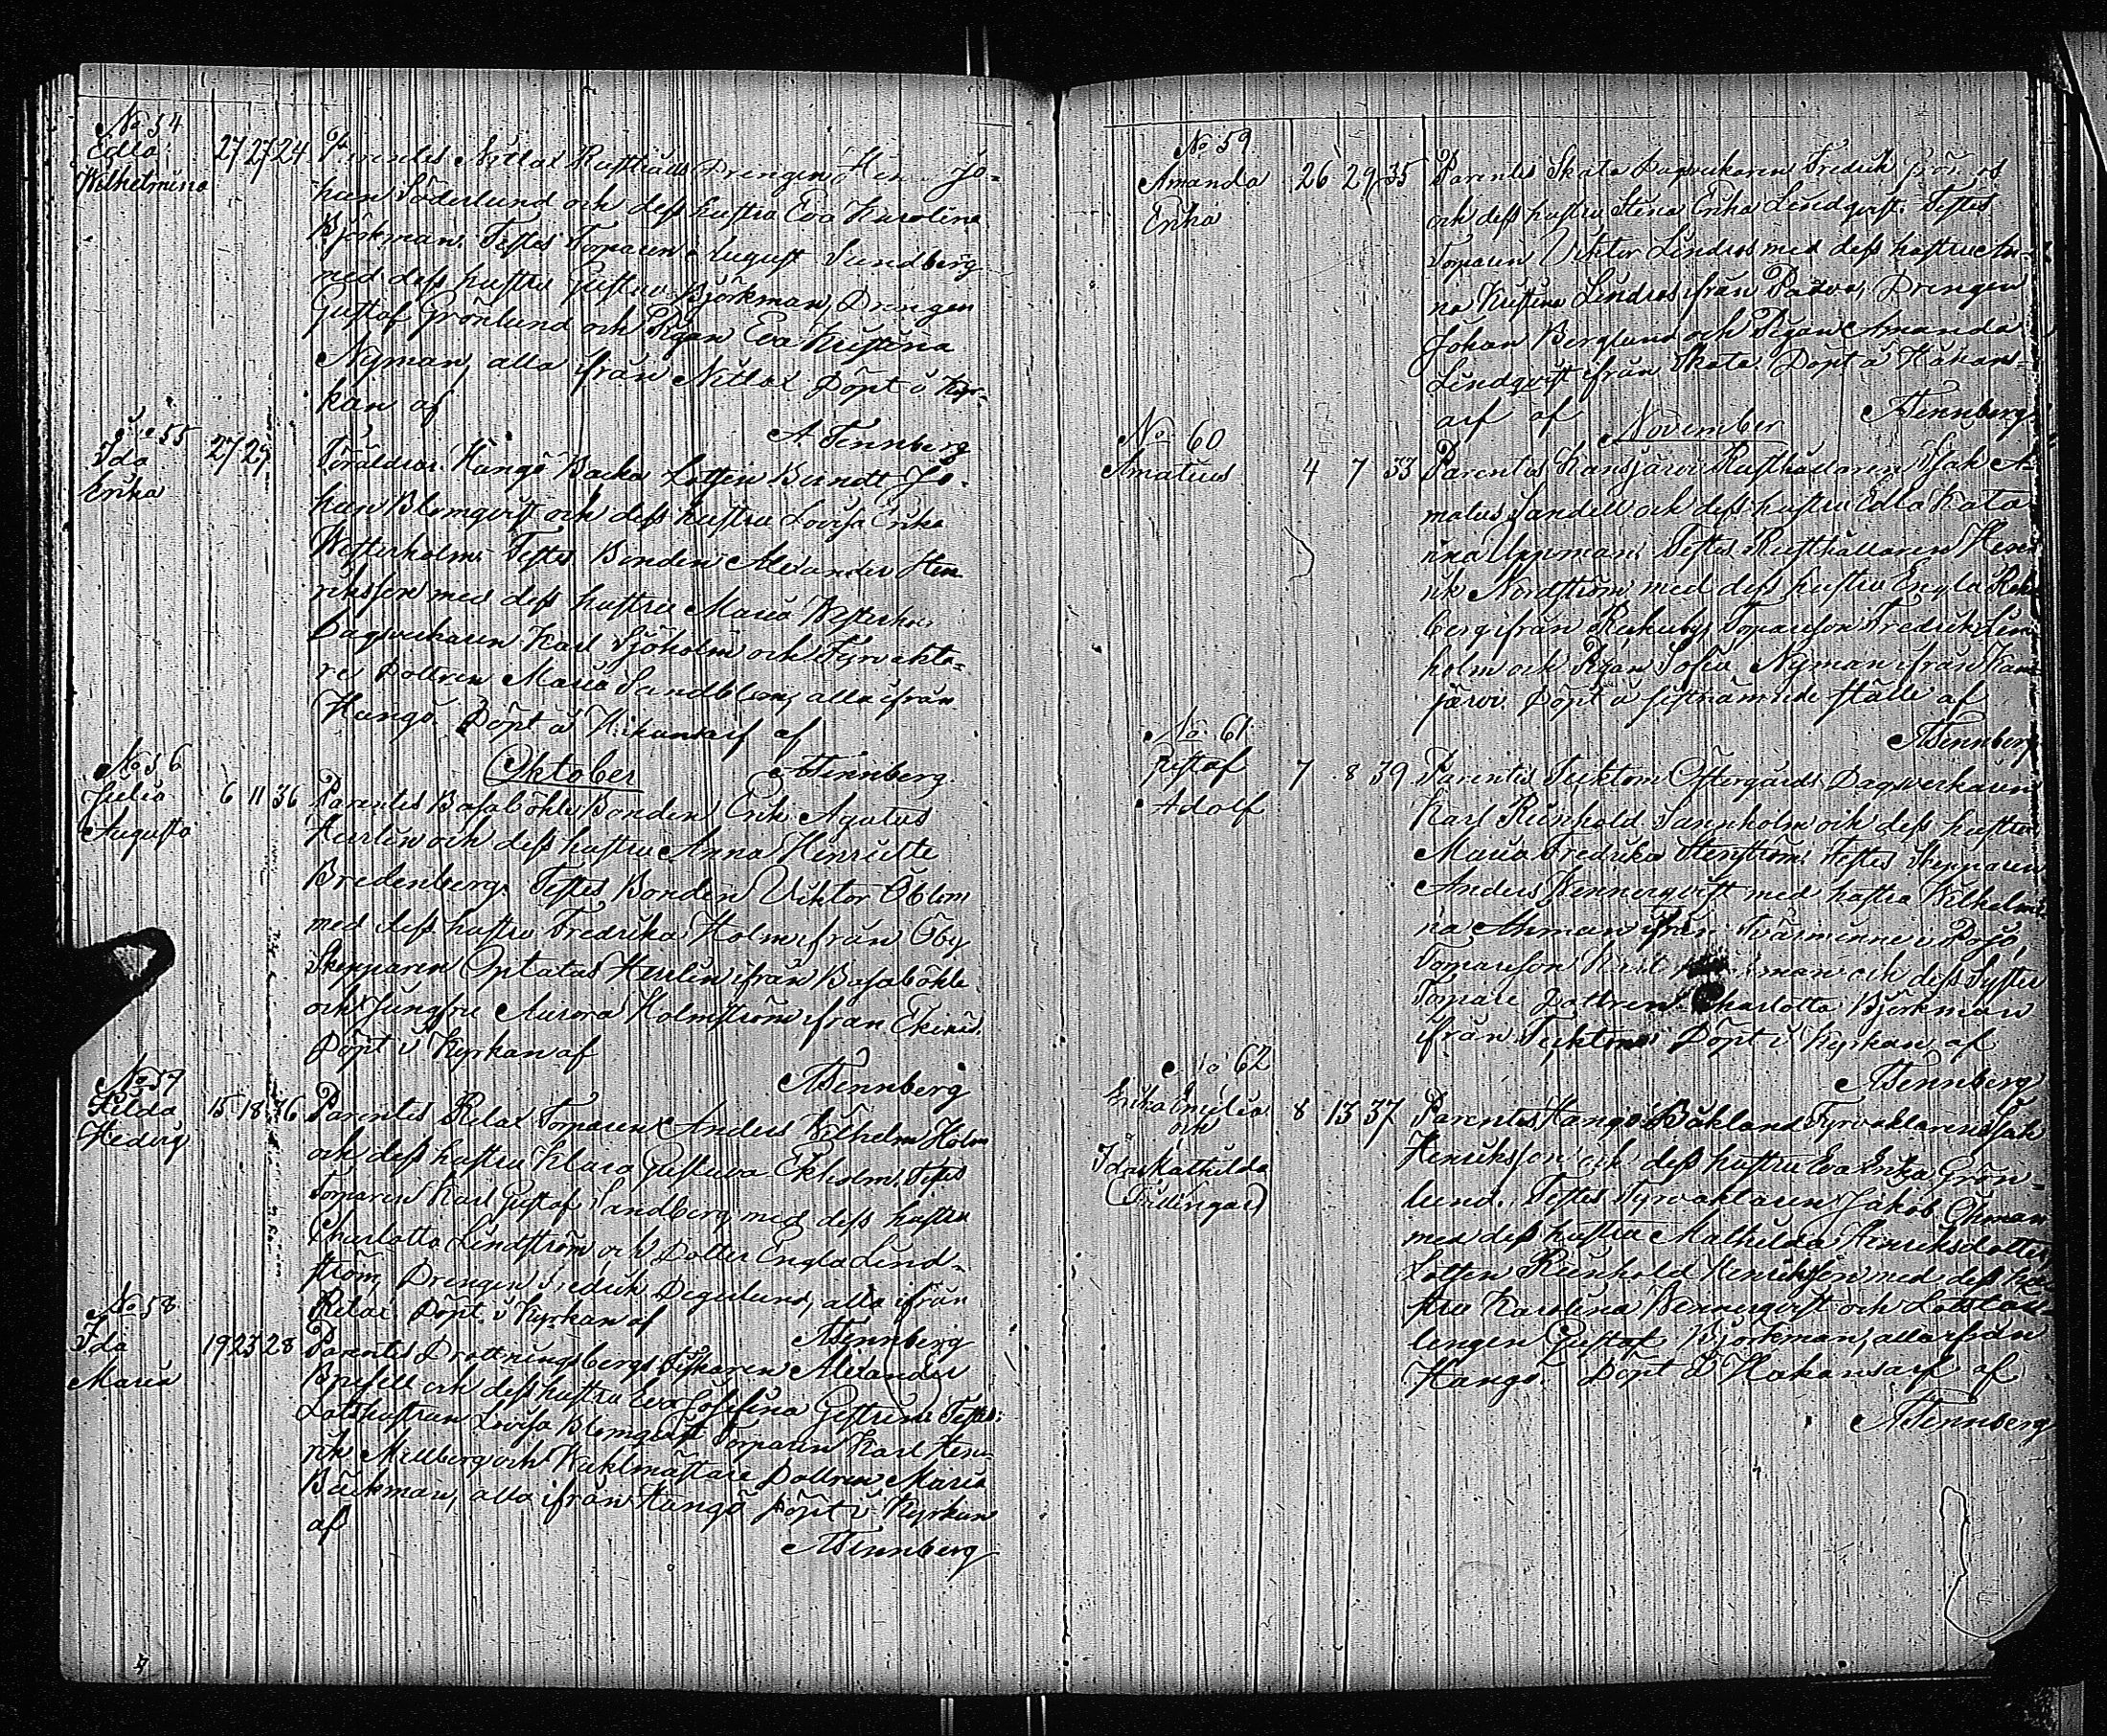 No 54
Edla
Wilhelmina
27 27 24 Parentes Nitlax Rusthålls Drengen Jo-
han Söderlund och dess hustru Eva Karolina
Björkman. Testes Torparen August Sundberg
med dess hustru Gustava Björkman, Drengen
Gustaf Grönlund och Pigan Eva Kristina
Nyman, alla ifrån Nitlax Döpt i Kyr-
kan af
A Tennberg
No 55
Ida
Erika
27 29 Föräldrar Hangö Backa Lotsen Berndt Jo-
han Blomqvist och dess hustru Lovisa Erika
Westerholm. Testes Bonden Alexander Hen-
riksson med dess hustru Maria
Dagsverkaren Karl Sjöholm och Fyrvakta-
re Dottren Maria Sandblom, alla ifrån
Hangö. Döpt å af
ATennberg.
Oktober
No 56
Julia
Augusta
6 11 36 Parentes Basaböhle Bonden Erik Agatus
Herlin och dess hustru Anna Henriette
Bredenberg. Testes Bonden Viktor Öblom
med dess hustru Fredrika Holm ifrån Öby
Skepparen Optatus Herlin ifrån Basaböhle
och Jungfru Aurora Holmström ifrån Ekenäs.
Döpt i Kyrkan af
ATennberg
No 57
Hilda
Hedvig
15 18 36 Parentes Relax Torparen Anders Vilhelm Holm
och dess hustru Klara Gustava Ekholm. Testes
Torparen Karl Gustaf Sandberg med dess hustru
Charlotta Lindström och Dotter Engla Lind-
ström, Drengen Fredrik Degerlund, alla ifrån
Relax Döpt i Kyrkan af
ATennberg
No 58
Ida
Maria
19 23 28 Parentes Drottningsbergs Fiskaren Alexander
och dess hustru Eva Josefina Gestrin. Testes:
Lotshustrun Lovisa Blomqvist Torparen Karl Hen-
rik Mellberg och Waktmästare Dottren Maria
Bäckman, alla ifrån Hangö Döpt i Kyrkan
af
ATennberg
No 59
Amanda
Erika
26 29 35 Parentes Skata Dagsverkaren Fredrik
och dess hustru Stina Erika Lindqvist. Testes
Torparen Viktor Lindros med dess hustru An-
na Kristina Lindros ifrån Padva, Drengen
Johan Berglund och Pigan Amanda
Lindqvist ifrån Skata. Döpt å Håkans-
arf af
ATennberg
November
No 60
Amatus
4 7 33 Parentes Kansjärvi Rusthållaren Isak A-
matus Sandell och dess hustru Edla Kata-
rina Uppman. Testes Rusthållaren Hen-
rik Nordström med dess hustru Engla
berg ifrån Torpareson Fredrik
holm och Pigan Sofia Nyman ifrån Kans-
järvi. Döpt å sistnämnde ställe af
ATennberg
No 61
Gustaf
Adolf
7 8 39 Parentes Tecktom Östergårds Dagsverkaren
Karl Reinhold Sannholm och dess hustru
Maria Fredrika Stenström. Testes Skepparen
Anders Wennerqvist med hustru Wilhelmi-
na Åhman ifrån Tvärminne i Pojo,
Torpareson och dess Syster
Torpare Dottren Charlotta Björkman
ifrån Tecktom. Döpt i Kyrkan af
ATennberg
No 62
Erika Emilia
och
Ida Mathilda
(Tvillingar)
8 13 37 Parentes Hangö Båkland Fyrvaktaren Isak
Henriksson och dess hustru Eva Erika Grön-
lund. Testes Fyrvaktaren Jakob Öhman
med dess hustru Mathilda Henriksdotter,
Lotsen Reinhold Henriksson med dess hu-
stru Karolina Wennerqvist och
Gustaf Björkman, alla ifrån
Hangö. Döpt å Håkansarf af
ATennberg